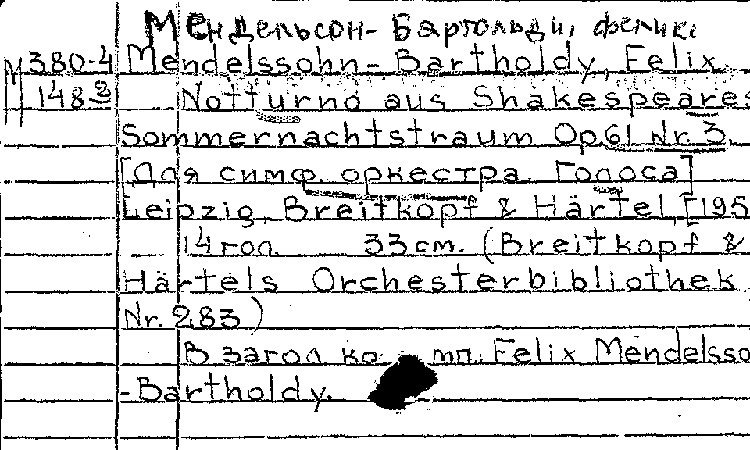 Мендельсон-Бартольди, Феликс
М 380-4 Mendelssohn-Bartholdy, Felix.
148 8 Notturno aus Shakespeares
Sommernachtstraum Op.61 Nr.3.
[Для симф. оркестра. Голоса]
Leipzig, Breitkopf & Härtel, [195
14 гол. 33 cm. (Breitkopf &
Härtels Orchesterbibliothek
Nr. 283)
В загол. ко мп. Felix Mendelsso
-Bartholdy.